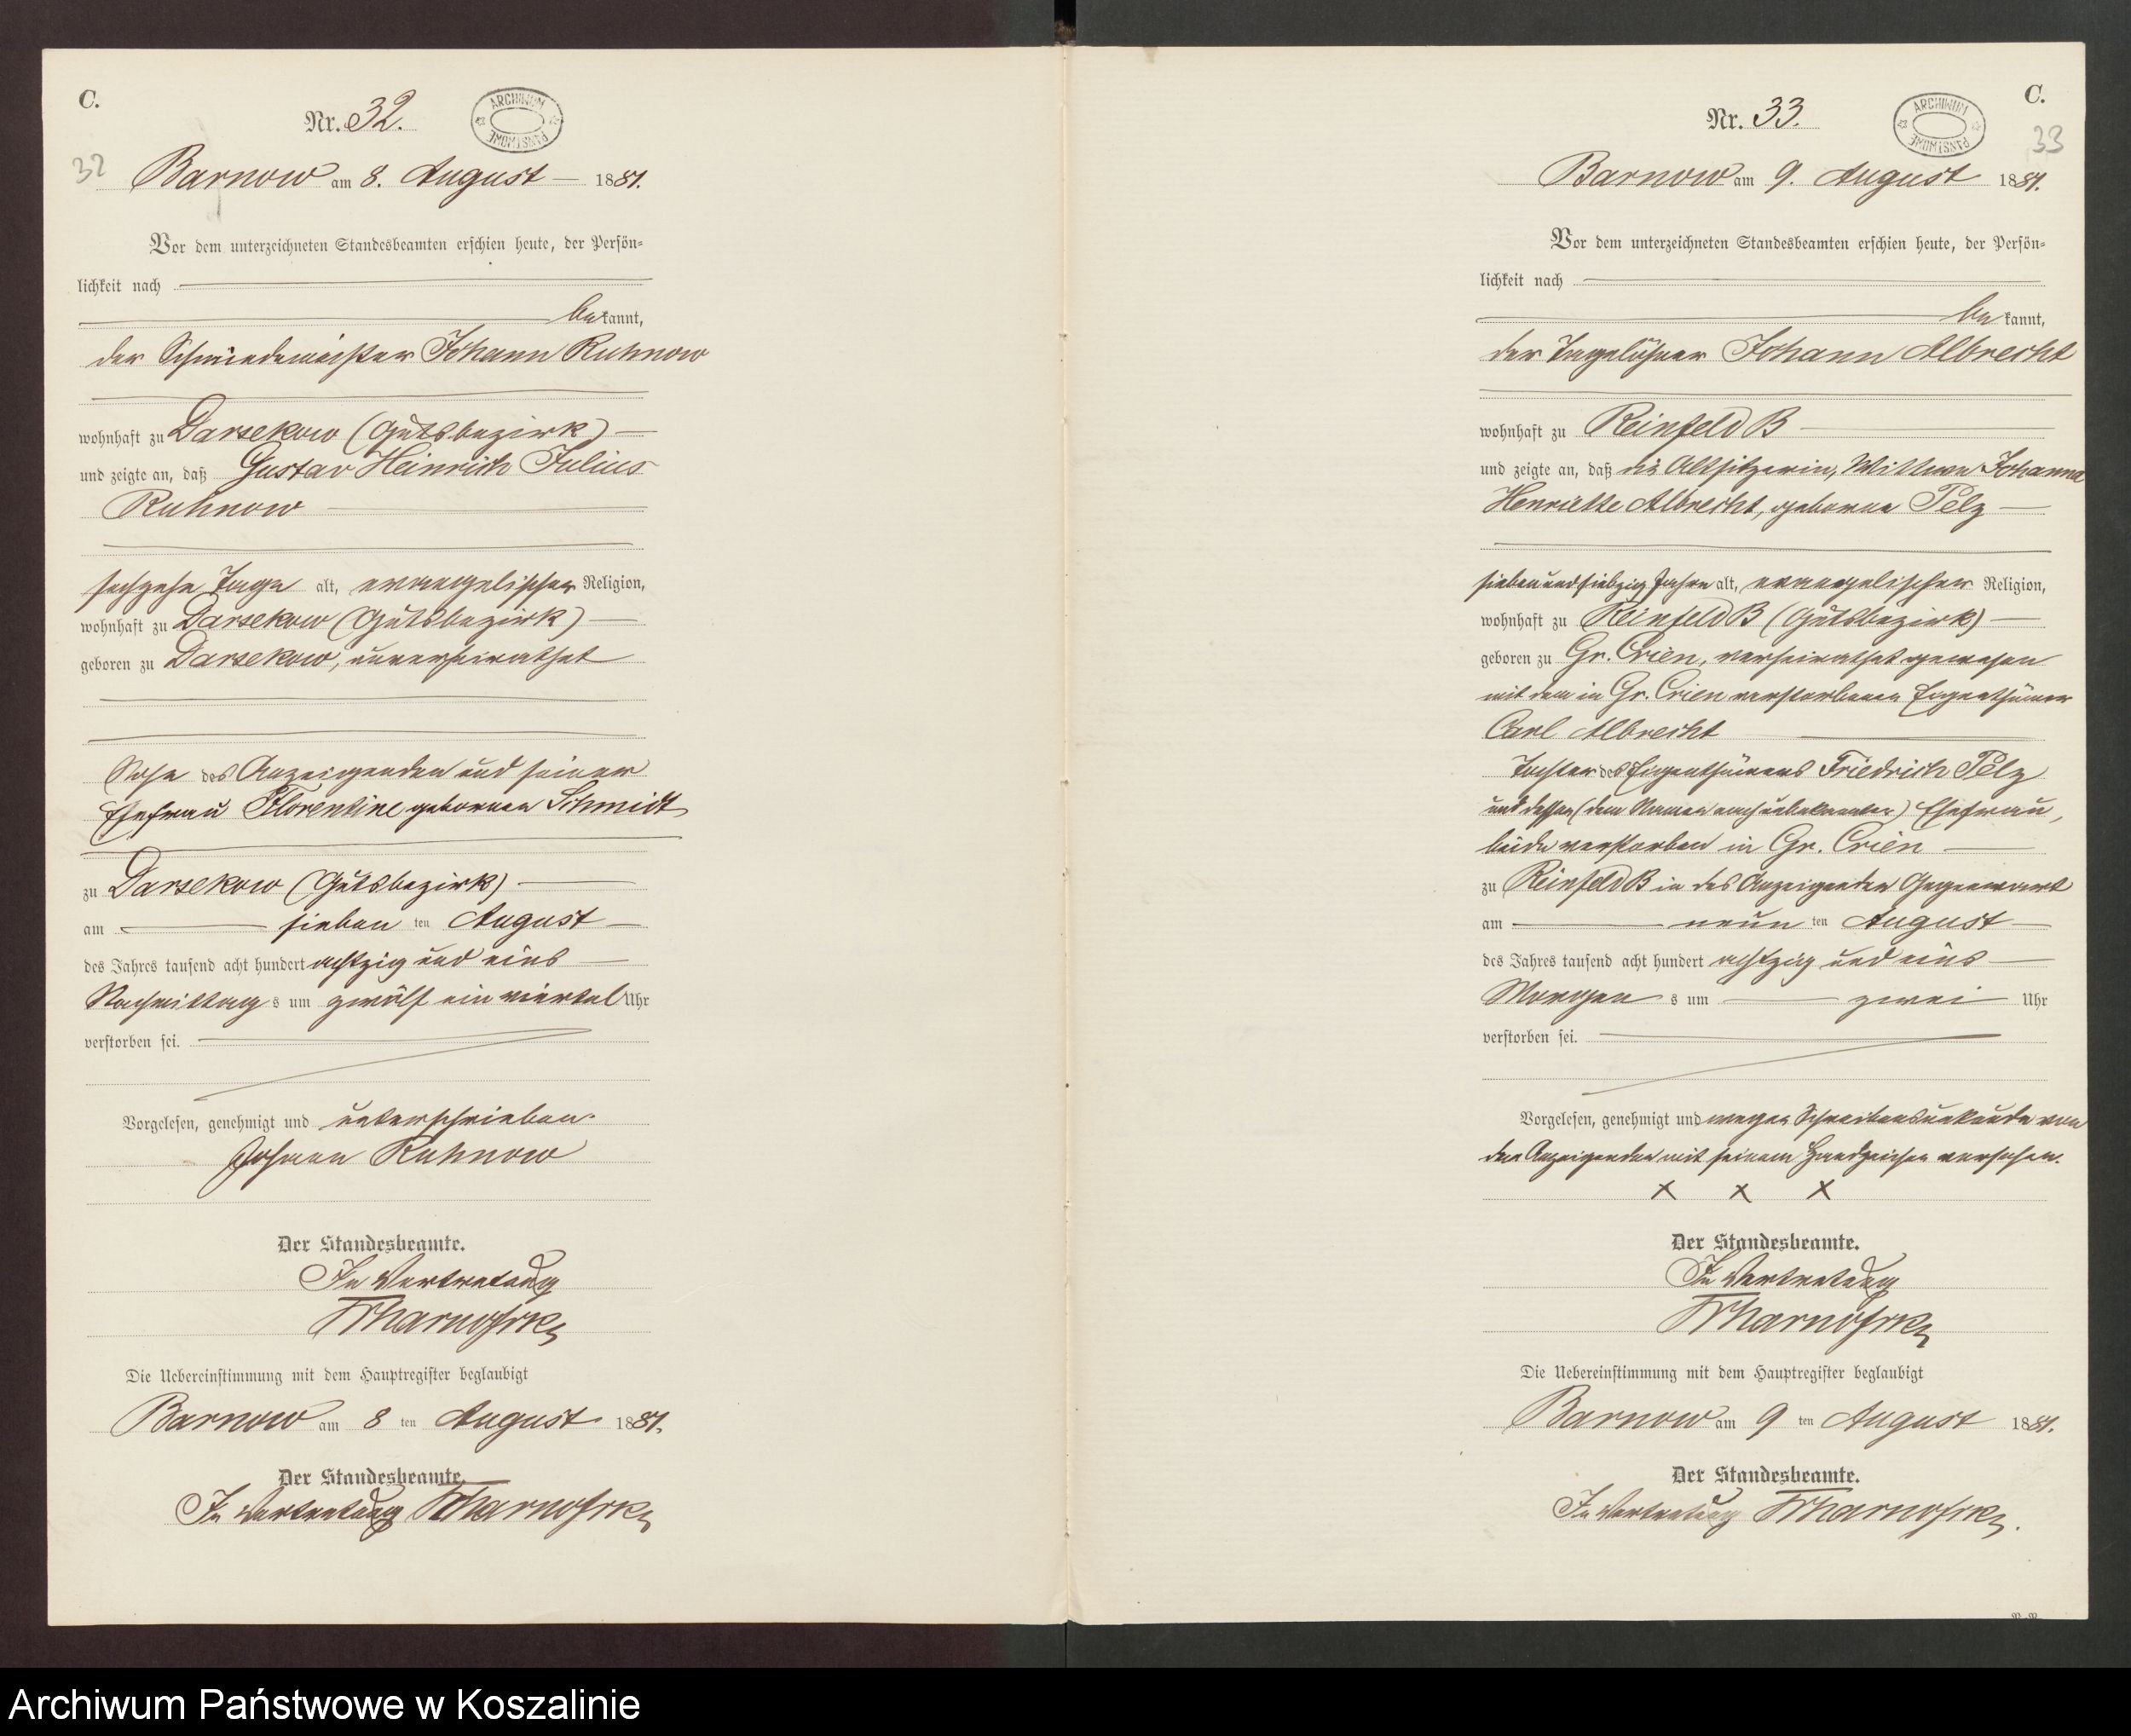 C.
Nr. 32.
ARCHIWUM PAŃSTWOWE
32
Barnow am 8. August 1881.
Vor dem unterzeichneten Standesbeamten erschien heute, der Persön-
lichkeit nach
bekannt,
der Schmiedemeister Johann Ruhnow
wohnhaft zu Darsekow (Gutsbezirk)
und zeigte an, daß Gustav Heinrich Julius
Ruhnow
sechzehn Tage alt, evangelischer Religion,
wohnhaft zu Darsekow (Gutsbezirk)
geboren zu Darsekow, unverheirathet
Sohn des Anzeigenden und seiner
Ehefrau Florentine gebornen Schmidt
zu Darsekow (Gutsbezirk)
am sieben ten August
des Jahres tausend acht hundert achtzig und eins
Nachmittags um zwölf ein viertel Uhr
verstorben sei.
Vorgelesen, genehmigt und unterschrieben.
Johann Ruhnow
Der Standesbeamte.
In Vertretung
Die Uebereinstimmung mit dem Hauptregister beglaubigt
Barnow am 8 ten August 1881.
Der Standesbeamte.
In Vertretung
C.
Nr. 33.
ARCHIWUM PAŃSTWOWE
33
Barnow am 9. August 1881.
Vor dem unterzeichneten Standesbeamten erschien heute, der Persön-
lichkeit nach
bekannt,
der Tagelöhner Johann Albrecht
wohnhaft zu Reinfeld B
und zeigte an, daß die Altsitzerin, Wittwe Johanna
Henriette Albrecht, geborne Pelz
siebenundsiebzig Jahre alt, evangelischer Religion,
wohnhaft zu Reinfeld B (Gutsbezirk)
geboren zu Gr. Crien, verheirathet gewesen
mit dem in Gr. Crien verstorbenen Eigenthümer
Carl Albrecht
Tochter des Eigenthümers Friedrich Pelz
und dessen (dem Namen nach unbekannten) Ehefrau,
beide verstorben in Gr. Crien
zu Reinfeld B in des Anzeigenden Gegenwart
am neun ten August
des Jahres tausend acht hundert achtzig und eins
Morgens um zwei Uhr
verstorben sei.
Vorgelesen, genehmigt und wegen Schreibensunkunde von
dem Anzeigenden mit seinem Handzeichen versehen.
x x x
Der Standesbeamte.
In Vertretung
Die Uebereinstimmung mit dem Hauptregister beglaubigt
Barnow am 9 ten August 1881.
Der Standesbeamte.
In Vertretung
Archiwum Państwowe w Koszalinie